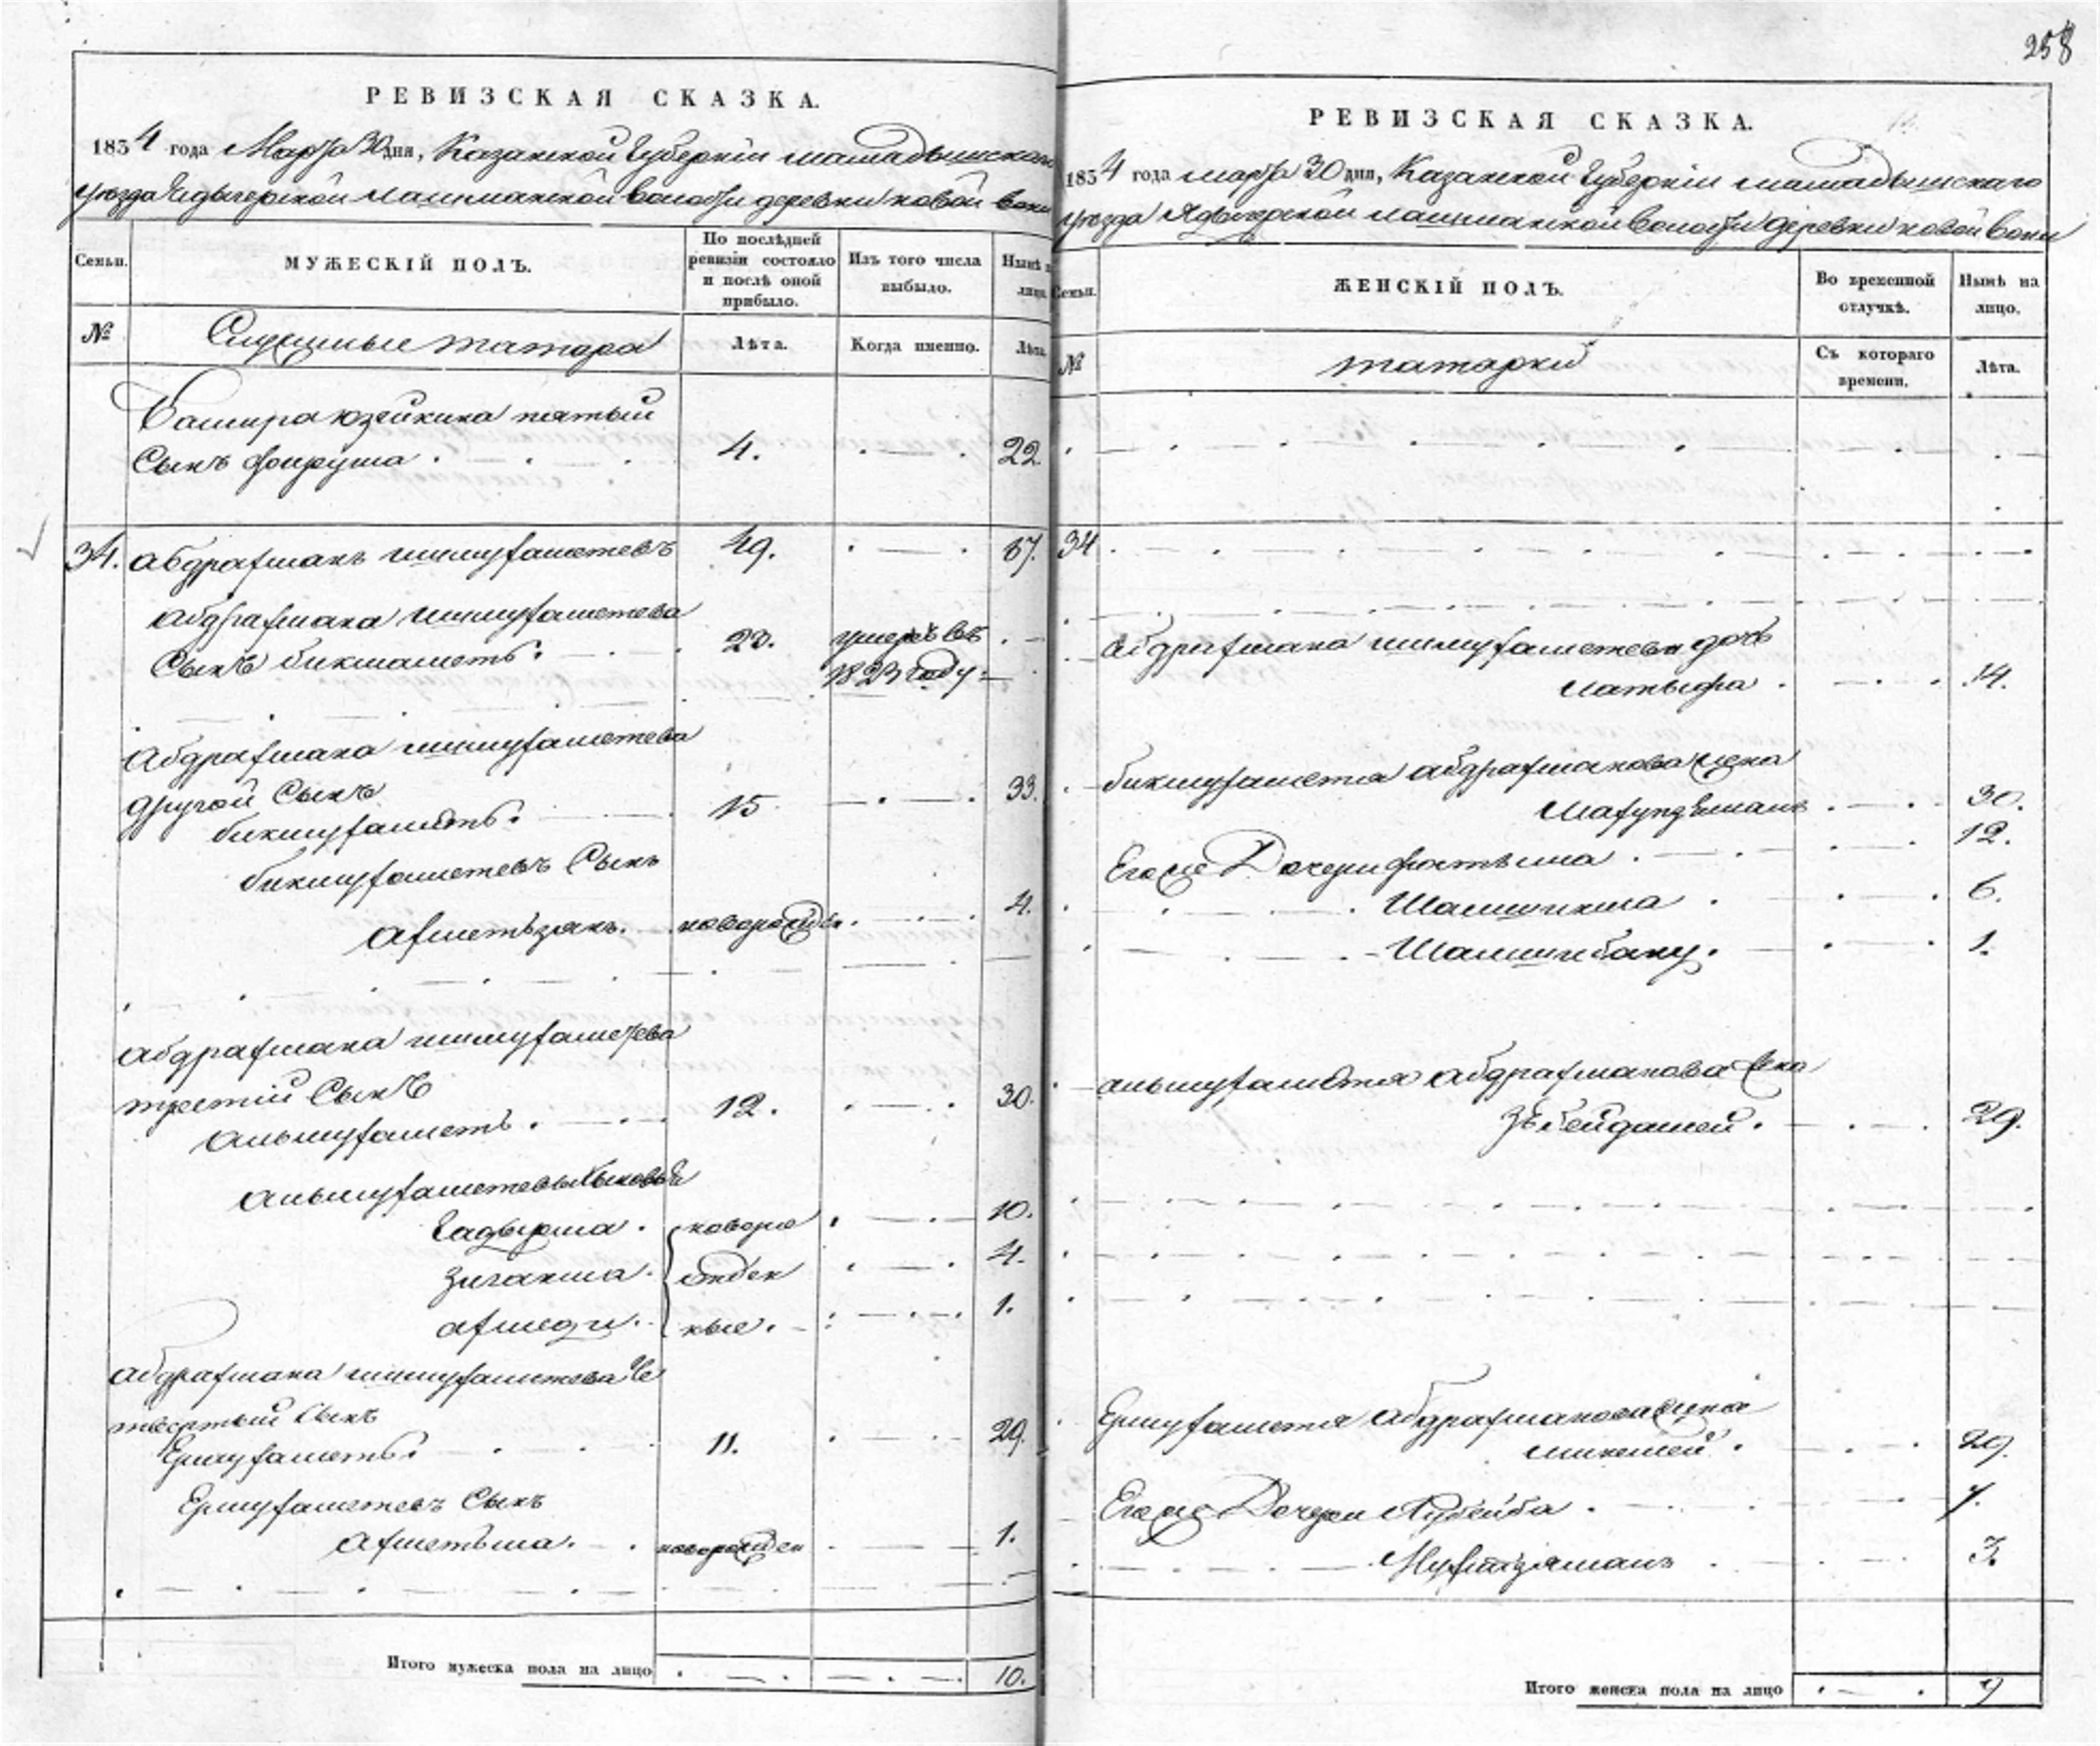 258
РЕВИЗСКАЯ СКАЗКА.
1834 года Марта 30 дня, Казанской Губернiи мамадышскаго
уѣзда Ядыгерской лашманской волости деревни новой
Семьи.
МУЖЕСКIЙ ПОЛЪ.
По послѣдней ревизiи состояло и послѣ оной прибыло.
Изъ того числа выбыло.
Нынѣ
лицо.
№
Служилые татара
Лѣта.
Когда именно.
Лѣта.
Башира юзейкина пятый
Сынъ 4. 22.
34. абдрахманъ ишмухаметевъ 49. 67.
абдрахмана ишмухаметева
Сынъ бикмаметъ. 23. умеръ въ
1823 году
Абдрахмана ишмухаметева
другой Сынъ
бикмухаметъ. 15 33.
бикмухаметевъ Сынъ
ахметьзянъ. новорожден. 4.
абдрахмана ишмухаметева
третiй Сынъ
альмухаметъ. 12. 30.
альмухаметевы Сыновья
Гадырша. новоро 10.
Зиганша. жден 4.
ахмеди. ные. 1.
абдрахмана ишмухаметева че
твертый Сынъ
Ермухаметъ 11. 29.
Ермухаметевъ Сынъ
Ахметьша. новорожден 1.
Итого мужеска пола на лицо 10.
РЕВИЗСКАЯ СКАЗКА.
1834 года марта 30 дня, Казанской Губернiи мамадышскаго
уѣзда Ядыгерской лашманской волости деревни новой
Семьи.
ЖЕНСКIЙ ПОЛЪ.
Во временной отлучкѣ.
Нынѣ на лицо.
№
татарки
Съ котораго времени.
Лѣта.
34
абдрахмана ишмухаметева дочь
Латыфа. 14.
бикмухаметя абдрахманова жена
30.
Его же Дочери фатьима. 12.
Шамшикма. 6.
Шамшибану. 1.
альмухаметя абдрахманова жена
Зъбейдашей. 29.
Ермухаметя абдрахманова жена
29.
Его же Дочери 7.
3.
Итого женска пола на лицо 9